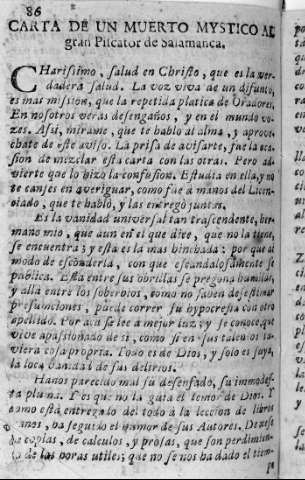 86
CARTA DE UN MUERTO MYSTICO AL
gran Piscator de Salamanca.
CHarissimo, salud en Christo, que es la ver-
dadera salud. La voz viva de un difunto,
es mas mission, que la repetida platica de Oradores.
En nosotros veras desengaños, y en el mundo vo-
zes. Assi, mirame, que te hablo al alma, y aprove-
chate de este aviso. La prisa de avisarte, fue la oca-
sion de mezclar esta carta con las otras. Pero ad-
vierte que lo hizo la confusion. Estudia en ella, y no
te canses en averiguar, como fue à manos del Licen-
ciado, que te hablò, y las entregò juntas.
Es la vanidad universal tan trascendente, her-
mano mio, que aun en el que dice, que no la tiene,
se encuentra; y esta es la mas hinchada; por que al
modo de esconderla, con que escandalosamente se
publica. Esta entre sus obrillas se pregona humilde,
y alla entre los soberbios, como no saben desestimar
presumciones, puede correr su hypocresia con otro
apellido. Por acá se lee à mejor luz, y se conoce, que
vive apassionado de si, como si en sus talentos tu-
viera cosa propria. Todo es de Dios, y solo es suya,
la loca vanidad de sus delirios.
Hanos parecido mal su desenfado, su immodes-
ta pluma. Y es que no la guia el temor de Dios. Y
como està entregado del todo à la leccion de libros
vanos, ha seguido el humor de sus Autores. Dexese
de coplas, de calculos, y prosas, que son perdimien-
to de las horas utiles; que no se nos ha dado el tiem-